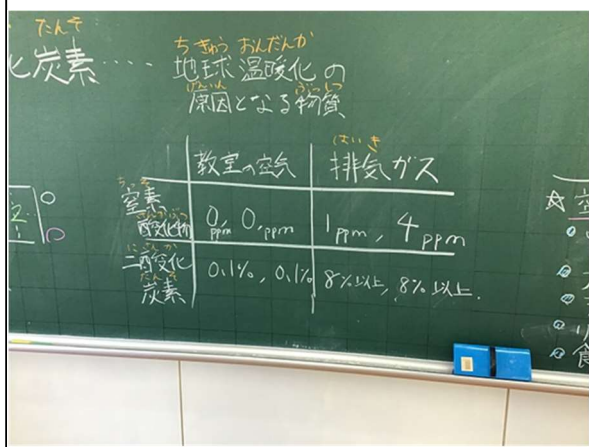 たんそ
化炭素‥‥
ちきゅう おんだんか
地球温暖化の
げんいん ぶっしつ
原因となる物質
はいき
教室の空気 排気ガス
ちっそ
窒素
さんかぶつ
酸化物 0ppm, 0ppm 1ppm, 4ppm
にさんか
二酸化
たんそ
炭素 0.1%, 0.1% 8%以上, 8%以上.
☆空
食